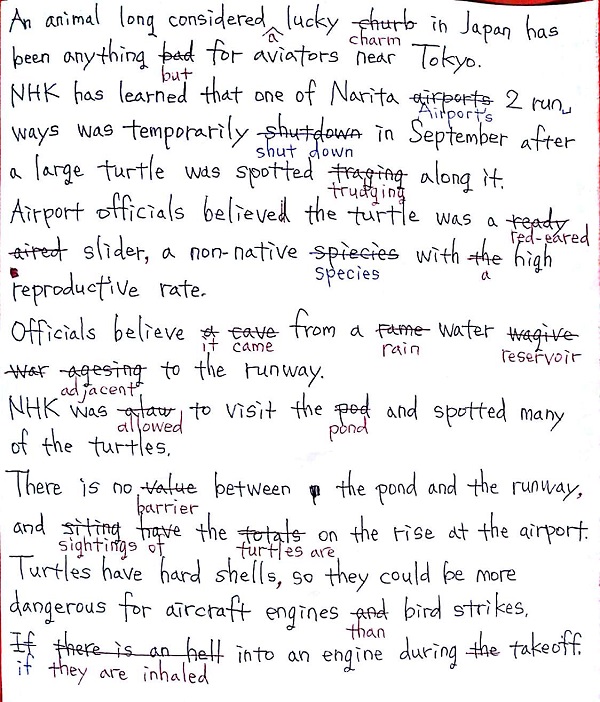 An animal long considered lucky churb in Japan has
a charm
been anything bad for aviators near Tokyo.
but
NHK has learned that one of Narita airports 2 run
Airport's
ways was temporarily shutdown in September after
shut down
a large turtle was spotted traging along it.
trudging
Airport officials believed the turtle was a ready
red-eared
aired slider, a non-native spiecies with the high
species a
reproductive rate.
Officials believe a cave from a rame water wagive
it came rain reservoir
war agesing to the runway.
adjacent
NHK was alaw to visit the pod and spotted many
allowed pond
of the turtles.
There is no value between the pond and the runway,
barrier
and siting have the totals on the rise at the airport.
sightings of turtles are
Turtles have hard shells, so they could be more
dangerous for aircraft engines and bird strikes.
than
If there is an hell into an engine during the takeoff.
if they are inhaled